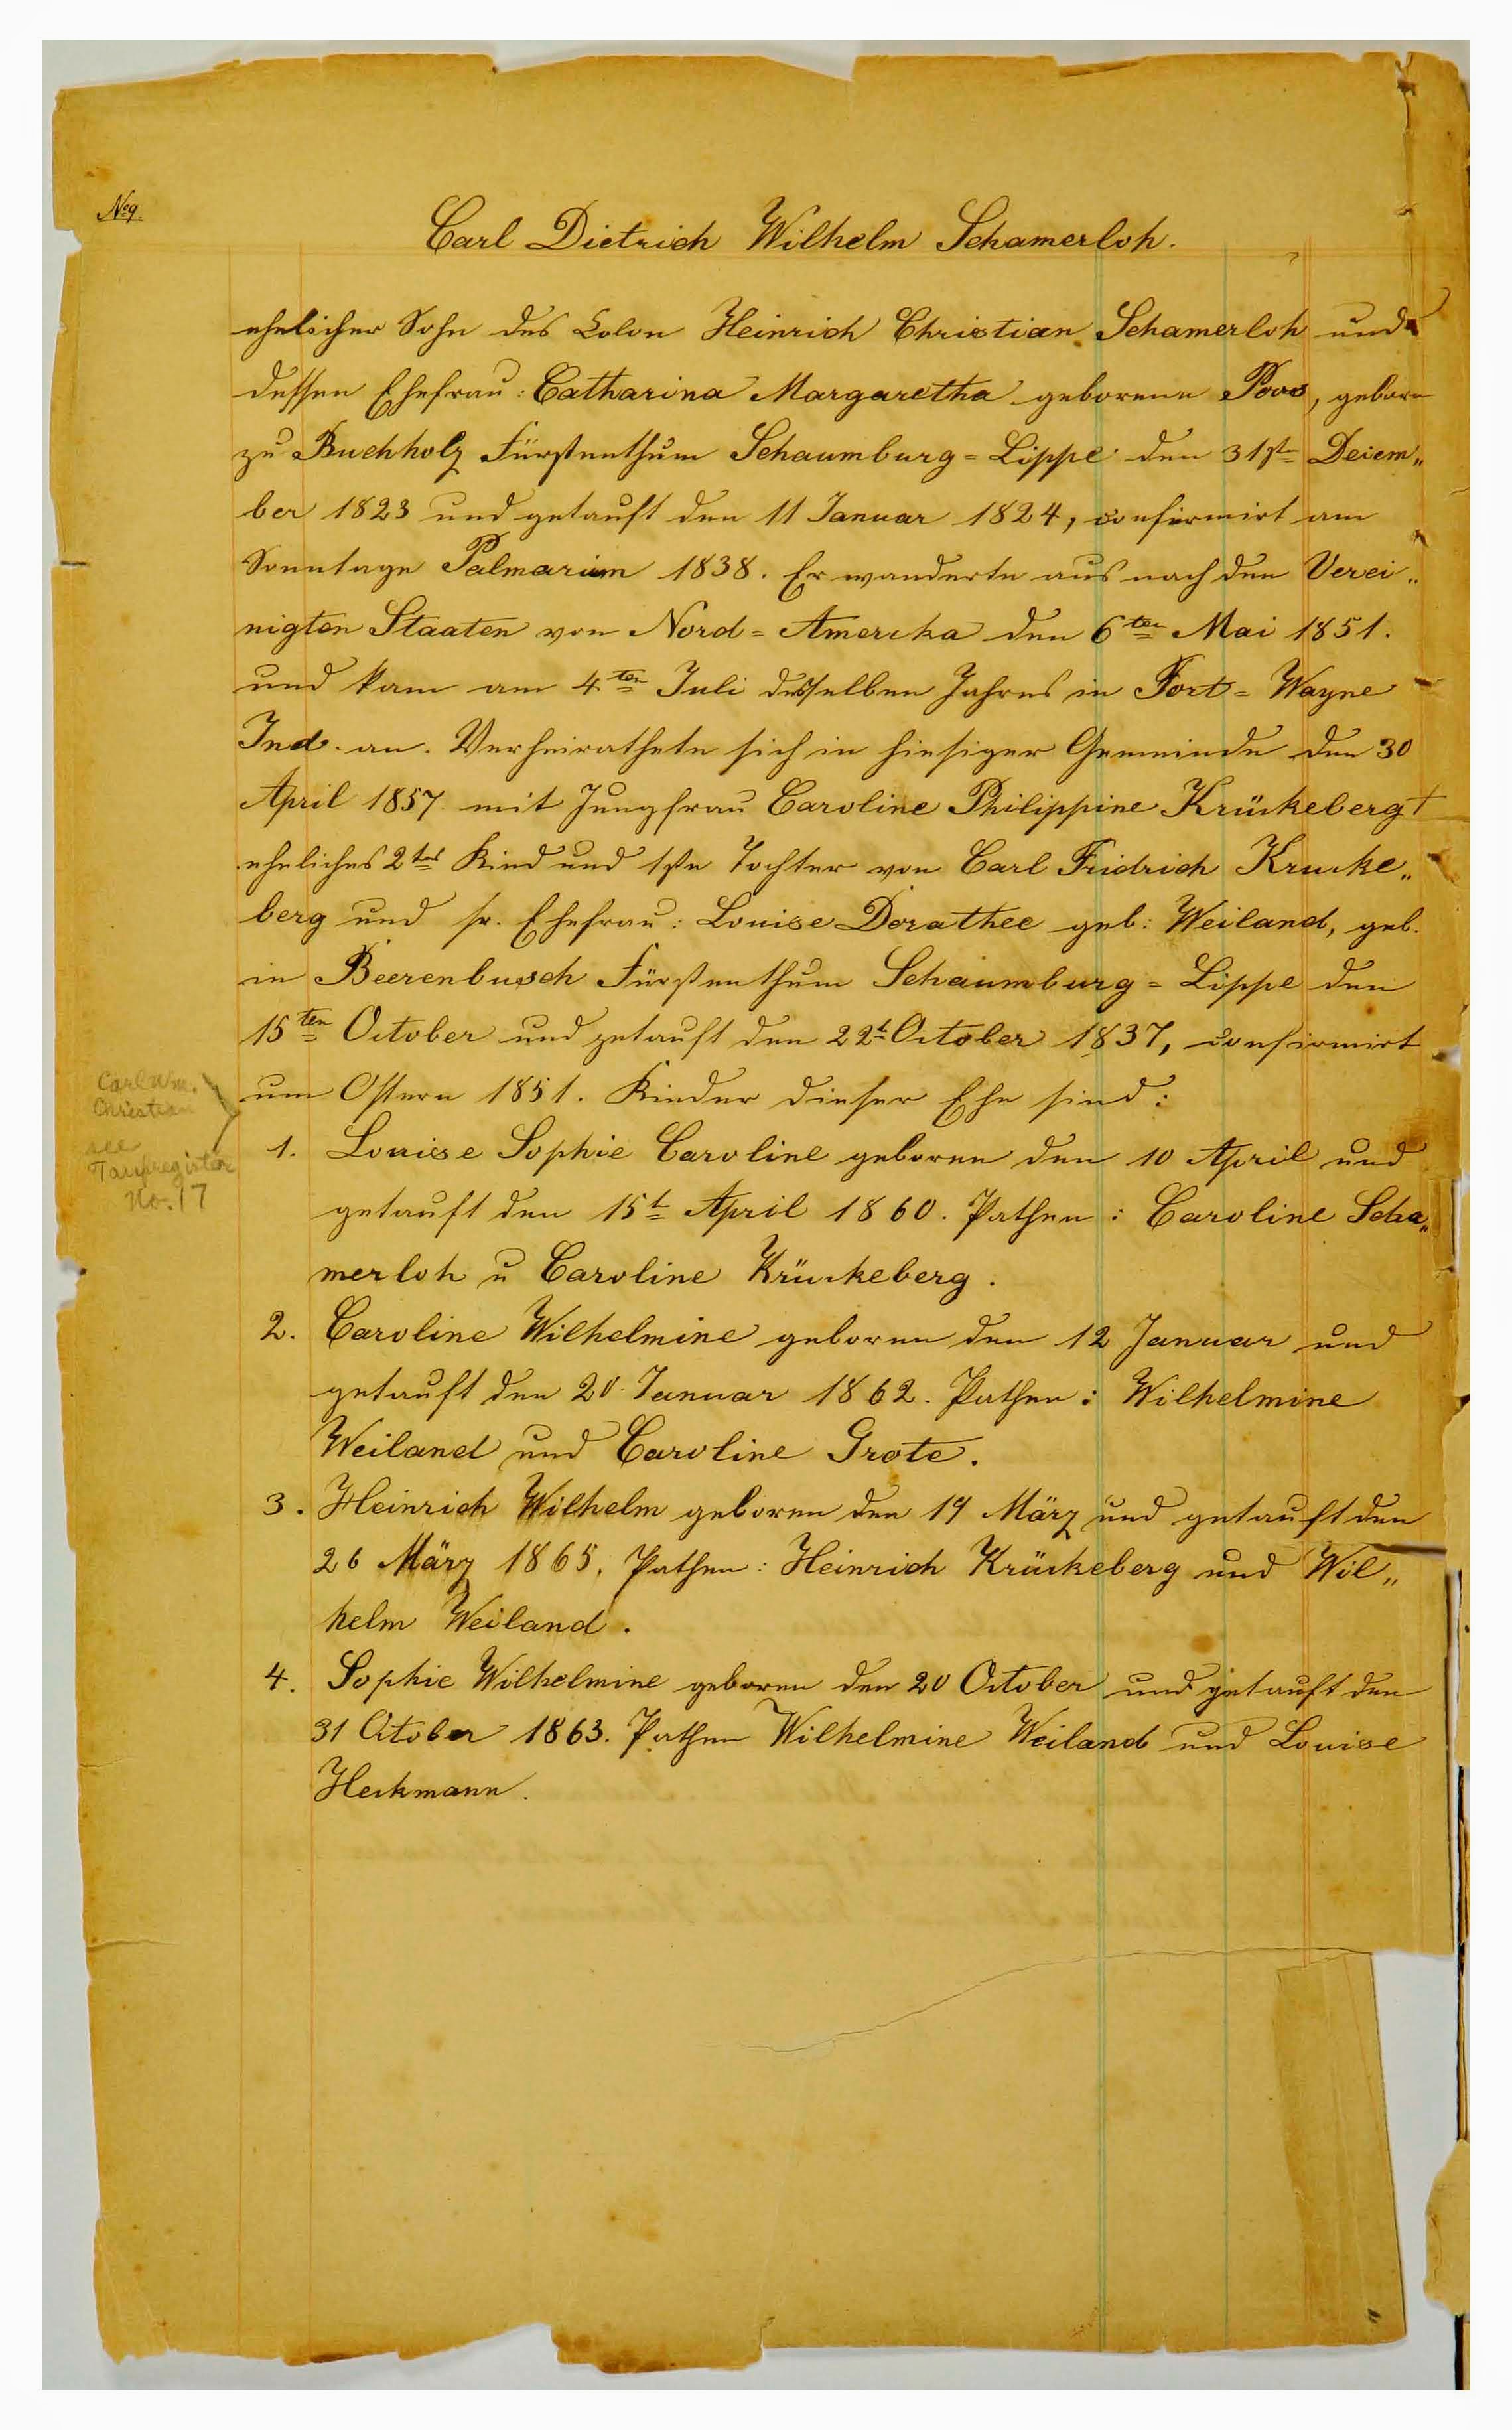 No 9.
Carl Dietrich Wilhelm Schamerloh.
ehelicher Sohn des Colon Heinrich Christian Schamerloh und
dessen Ehefrau: Catharina Margaretha geborene Poos, geboren
zu Buchholz Fürstenthum Schaumburg=Lippe den 31st Decem„
ber 1823 und getauft den 11 Januar 1824, confirmirt am
Sonntage Palmarum 1838. Er wanderte aus nach den Verei„
nigten Staaten von Nord=Amerika den 6ten Mai 1851.
und kam am 4ten Juli desselben Jahres in Fort=Wayne
Ind. an. Verheirathete sich in hiesiger Gemeinde den 30
April 1857 mit Jungfrau Caroline Philippine Krückeberg +
eheliches 2tes Kind und 1ste Tochter von Carl Fridrich Krucke„
berg und sr. Ehefrau: Louise Dorathee geb: Weiland, geb.
in Beerenbusch Fürstenthum Schaumburg=Lippe den
15ten October und getauft den 22t October 1837, confirmirt
um Ostern 1851. Kinder dieser Ehe sind:
Carl Wm.
Christian
see
Taufregister
No. 17
1. Louise Sophie Caroline geboren den 10 April und
getauft den 15t April 1860. Pathen: Caroline Scha„
merloh u Caroline Krückeberg.
2. Caroline Wilhelmine geboren den 12 Januar und
getauft den 20. Januar 1862. Pathen: Wilhelmine
Weiland und Caroline Grote.
3. Heinrich Wilhelm geboren den 19 März und getauft den
26 März 1865. Pathen: Heinrich Krückeberg und Wil„
helm Weiland.
4. Sophie Wilhelmine geboren den 20 October und getauft den
31 October 1863. Pathen Wilhelmine Weiland und Louise
Heckmann.